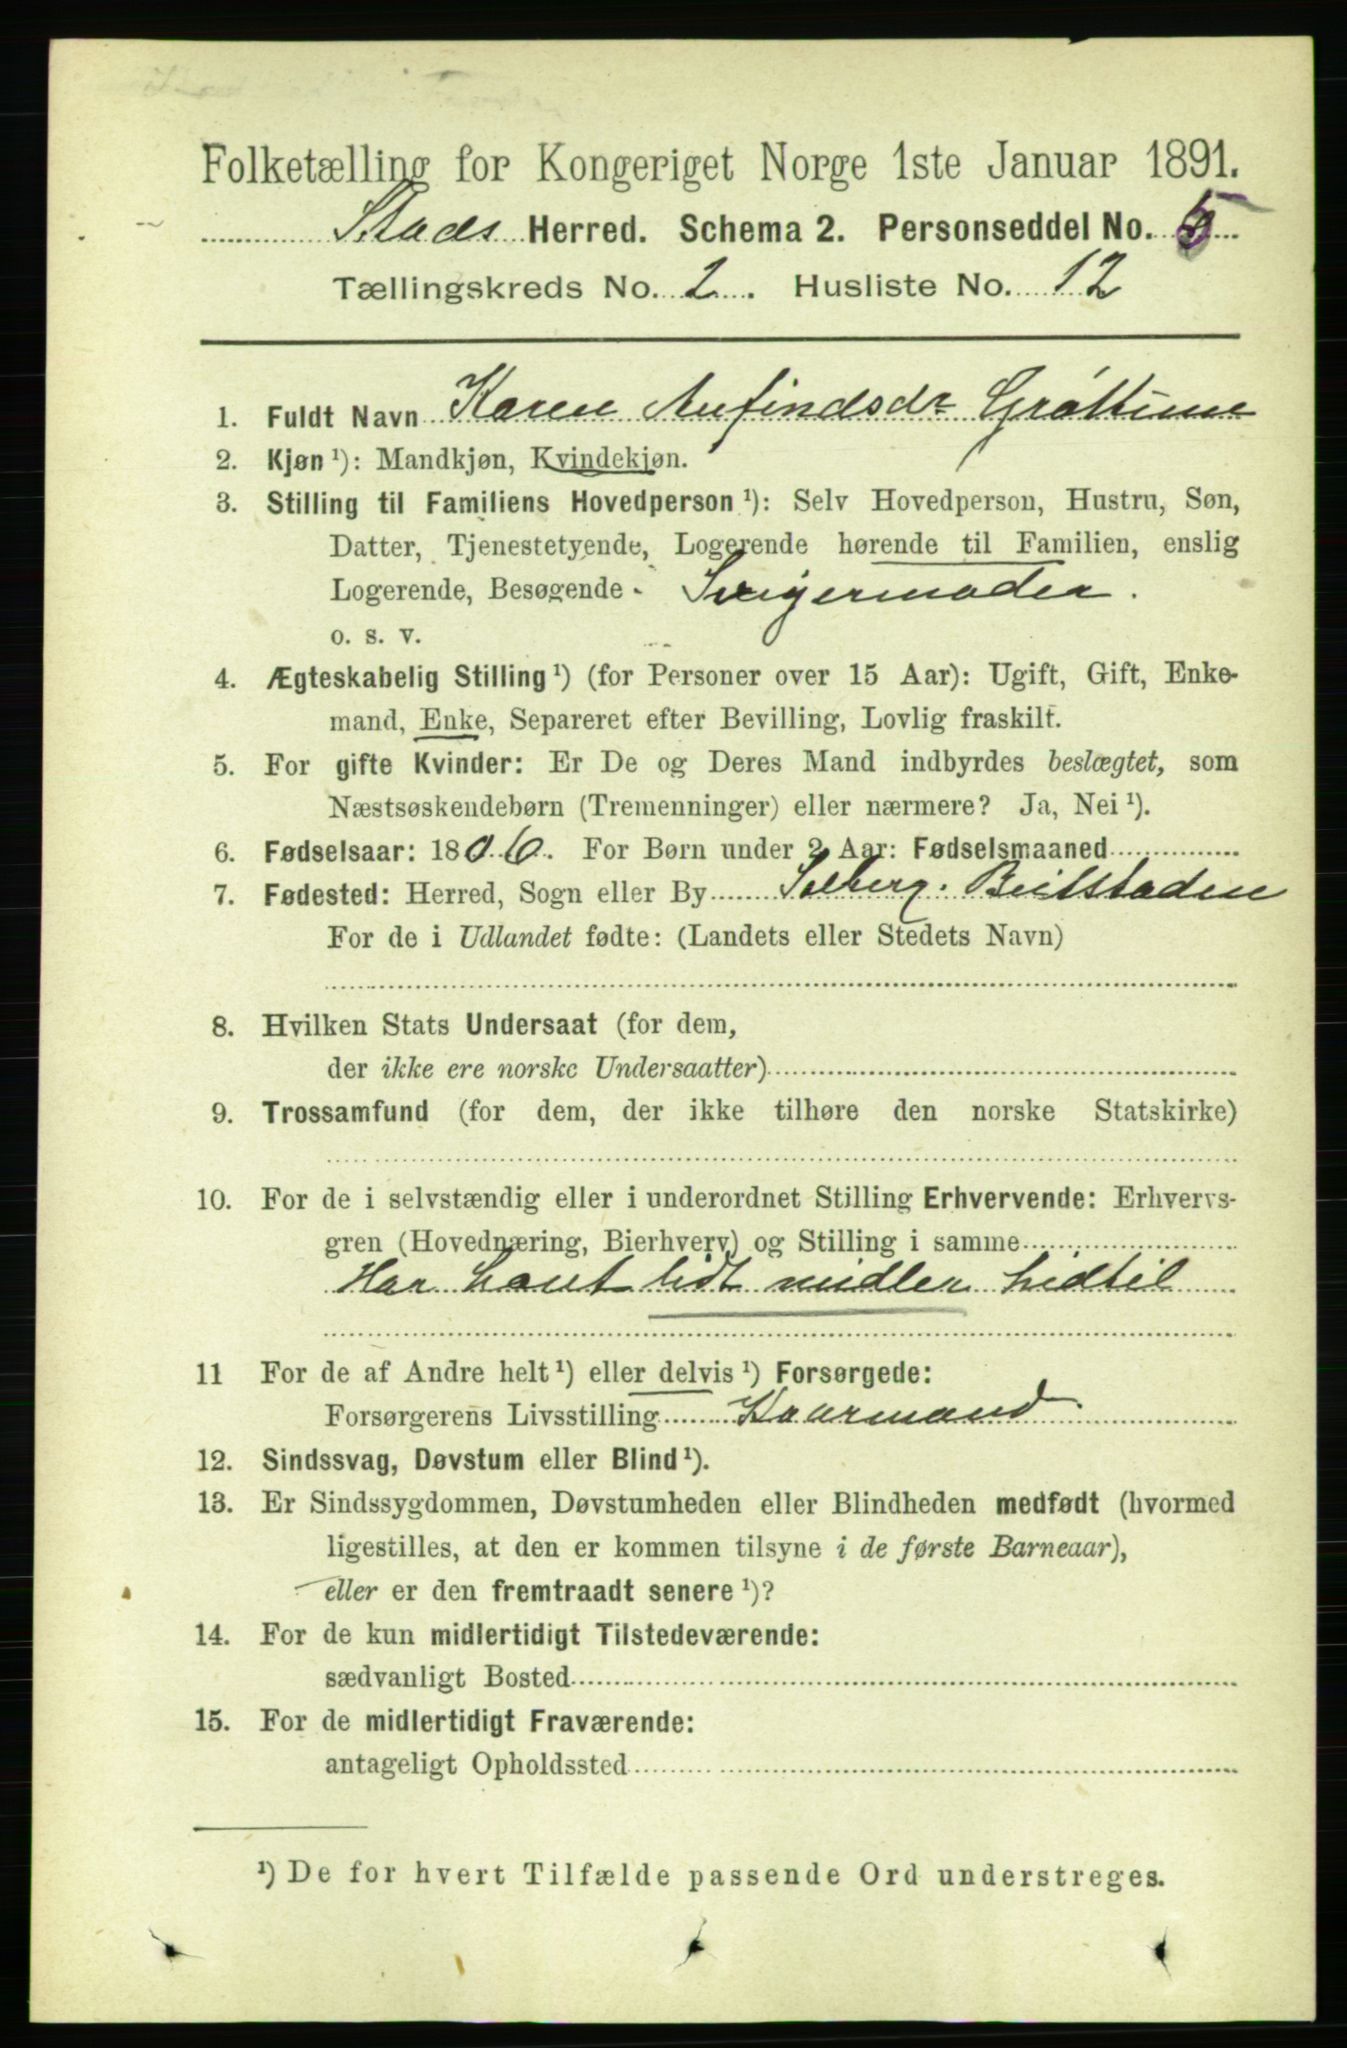 Folketælling for Kongeriget Norge 1ste Januar 1891.
Stads Herred. Schema 2. Personseddel No. 5
Tællingskreds No. 2. Husliste No. 12
1. Fuldt Navn Karen Anfindsdr Gråttime
2. Kjøn ¹): Mandkjøn, Kvindekjøn.
3. Stilling til Familiens Hovedperson ¹): Selv Hovedperson, Hustru, Søn,
Datter, Tjenestetyende, Logerende hørende til Familien, enslig
Logerende, Besøgende - Svigermoder.
o. s. v.
4. Ægteskabelig Stilling ¹) (for Personer over 15 Aar): Ugift, Gift, Enke-
mand, Enke, Separeret efter Bevilling, Lovlig fraskilt.
5. For gifte Kvinder: Er De og Deres Mand indbyrdes beslægtet, som
Næstsøskendebørn (Tremenninger) eller nærmere? Ja, Nei ¹).
6. Fødselsaar: 1806. For Børn under 2 Aar: Fødselsmaaned
7. Fødested: Herred, Sogn eller By Solberg. Beitstaden
For de i Udlandet fødte: (Landets eller Stedets Navn)
8. Hvilken Stats Undersaat (for dem,
der ikke ere norske Undersaatter)
9. Trossamfund (for dem, der ikke tilhøre den norske Statskirke)
10. For de i selvstændig eller i underordnet Stilling Erhvervende: Erhvervs-
gren (Hovednæring, Bierhverv) og Stilling i samme
Har havt lidt midler hidtil
11 For de af Andre helt ¹) eller delvis ¹) Forsørgede:
Forsørgerens Livsstilling Kaarmand
12. Sindssvag, Døvstum eller Blind ¹).
13. Er Sindssygdommen, Døvstumheden eller Blindheden medfødt (hvormed
ligestilles, at den er kommen tilsyne i de første Barneaar),
eller er den fremtraadt senere ¹)?
14. For de kun midlertidigt Tilstedeværende:
sædvanligt Bosted
15. For de midlertidigt Fraværende:
antageligt Opholdssted
¹) De for hvert Tilfælde passende Ord understreges.